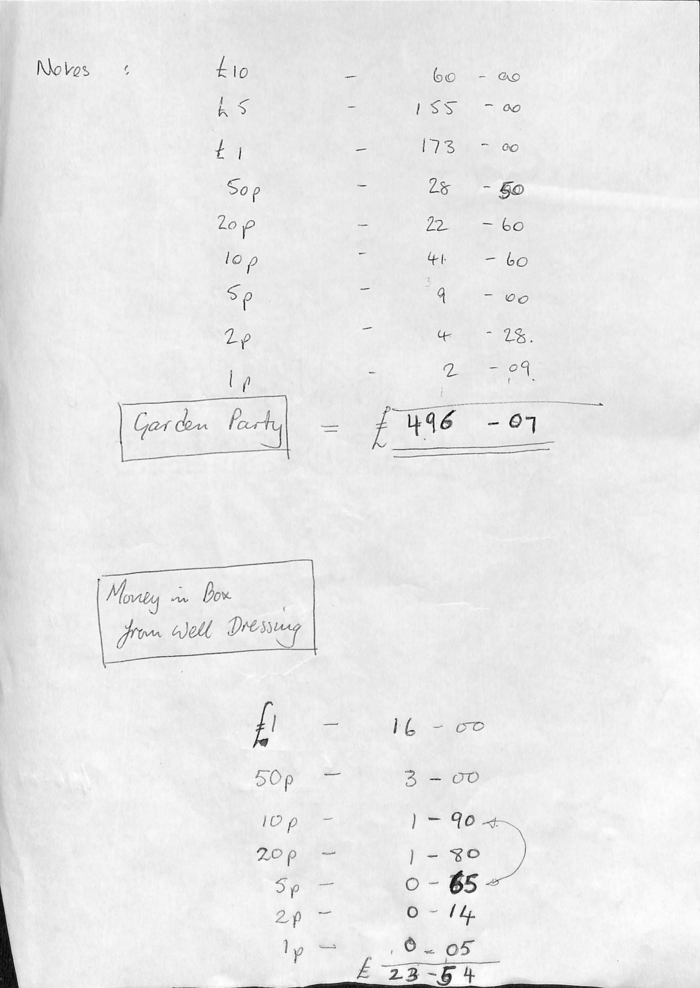 Notes : £10 - 60 - 00
£5 - 155 - 00
£1 - 173 - 00
50p - 28 - 50
20p - 22 - 60
10p - 41 - 60
5p - 9 - 00
2p - 4 - 28.
1p - 2 - 09.
Garden Party = £ 496 - 07
Money in Box
from Well Dressing
£1 - 16 - 00
50p - 3 - 00
10p - 1 - 90
20p - 1 - 80
5p - 0 - 65
2p - 0 - 14
1p - 0 - 05
£ 23 - 54